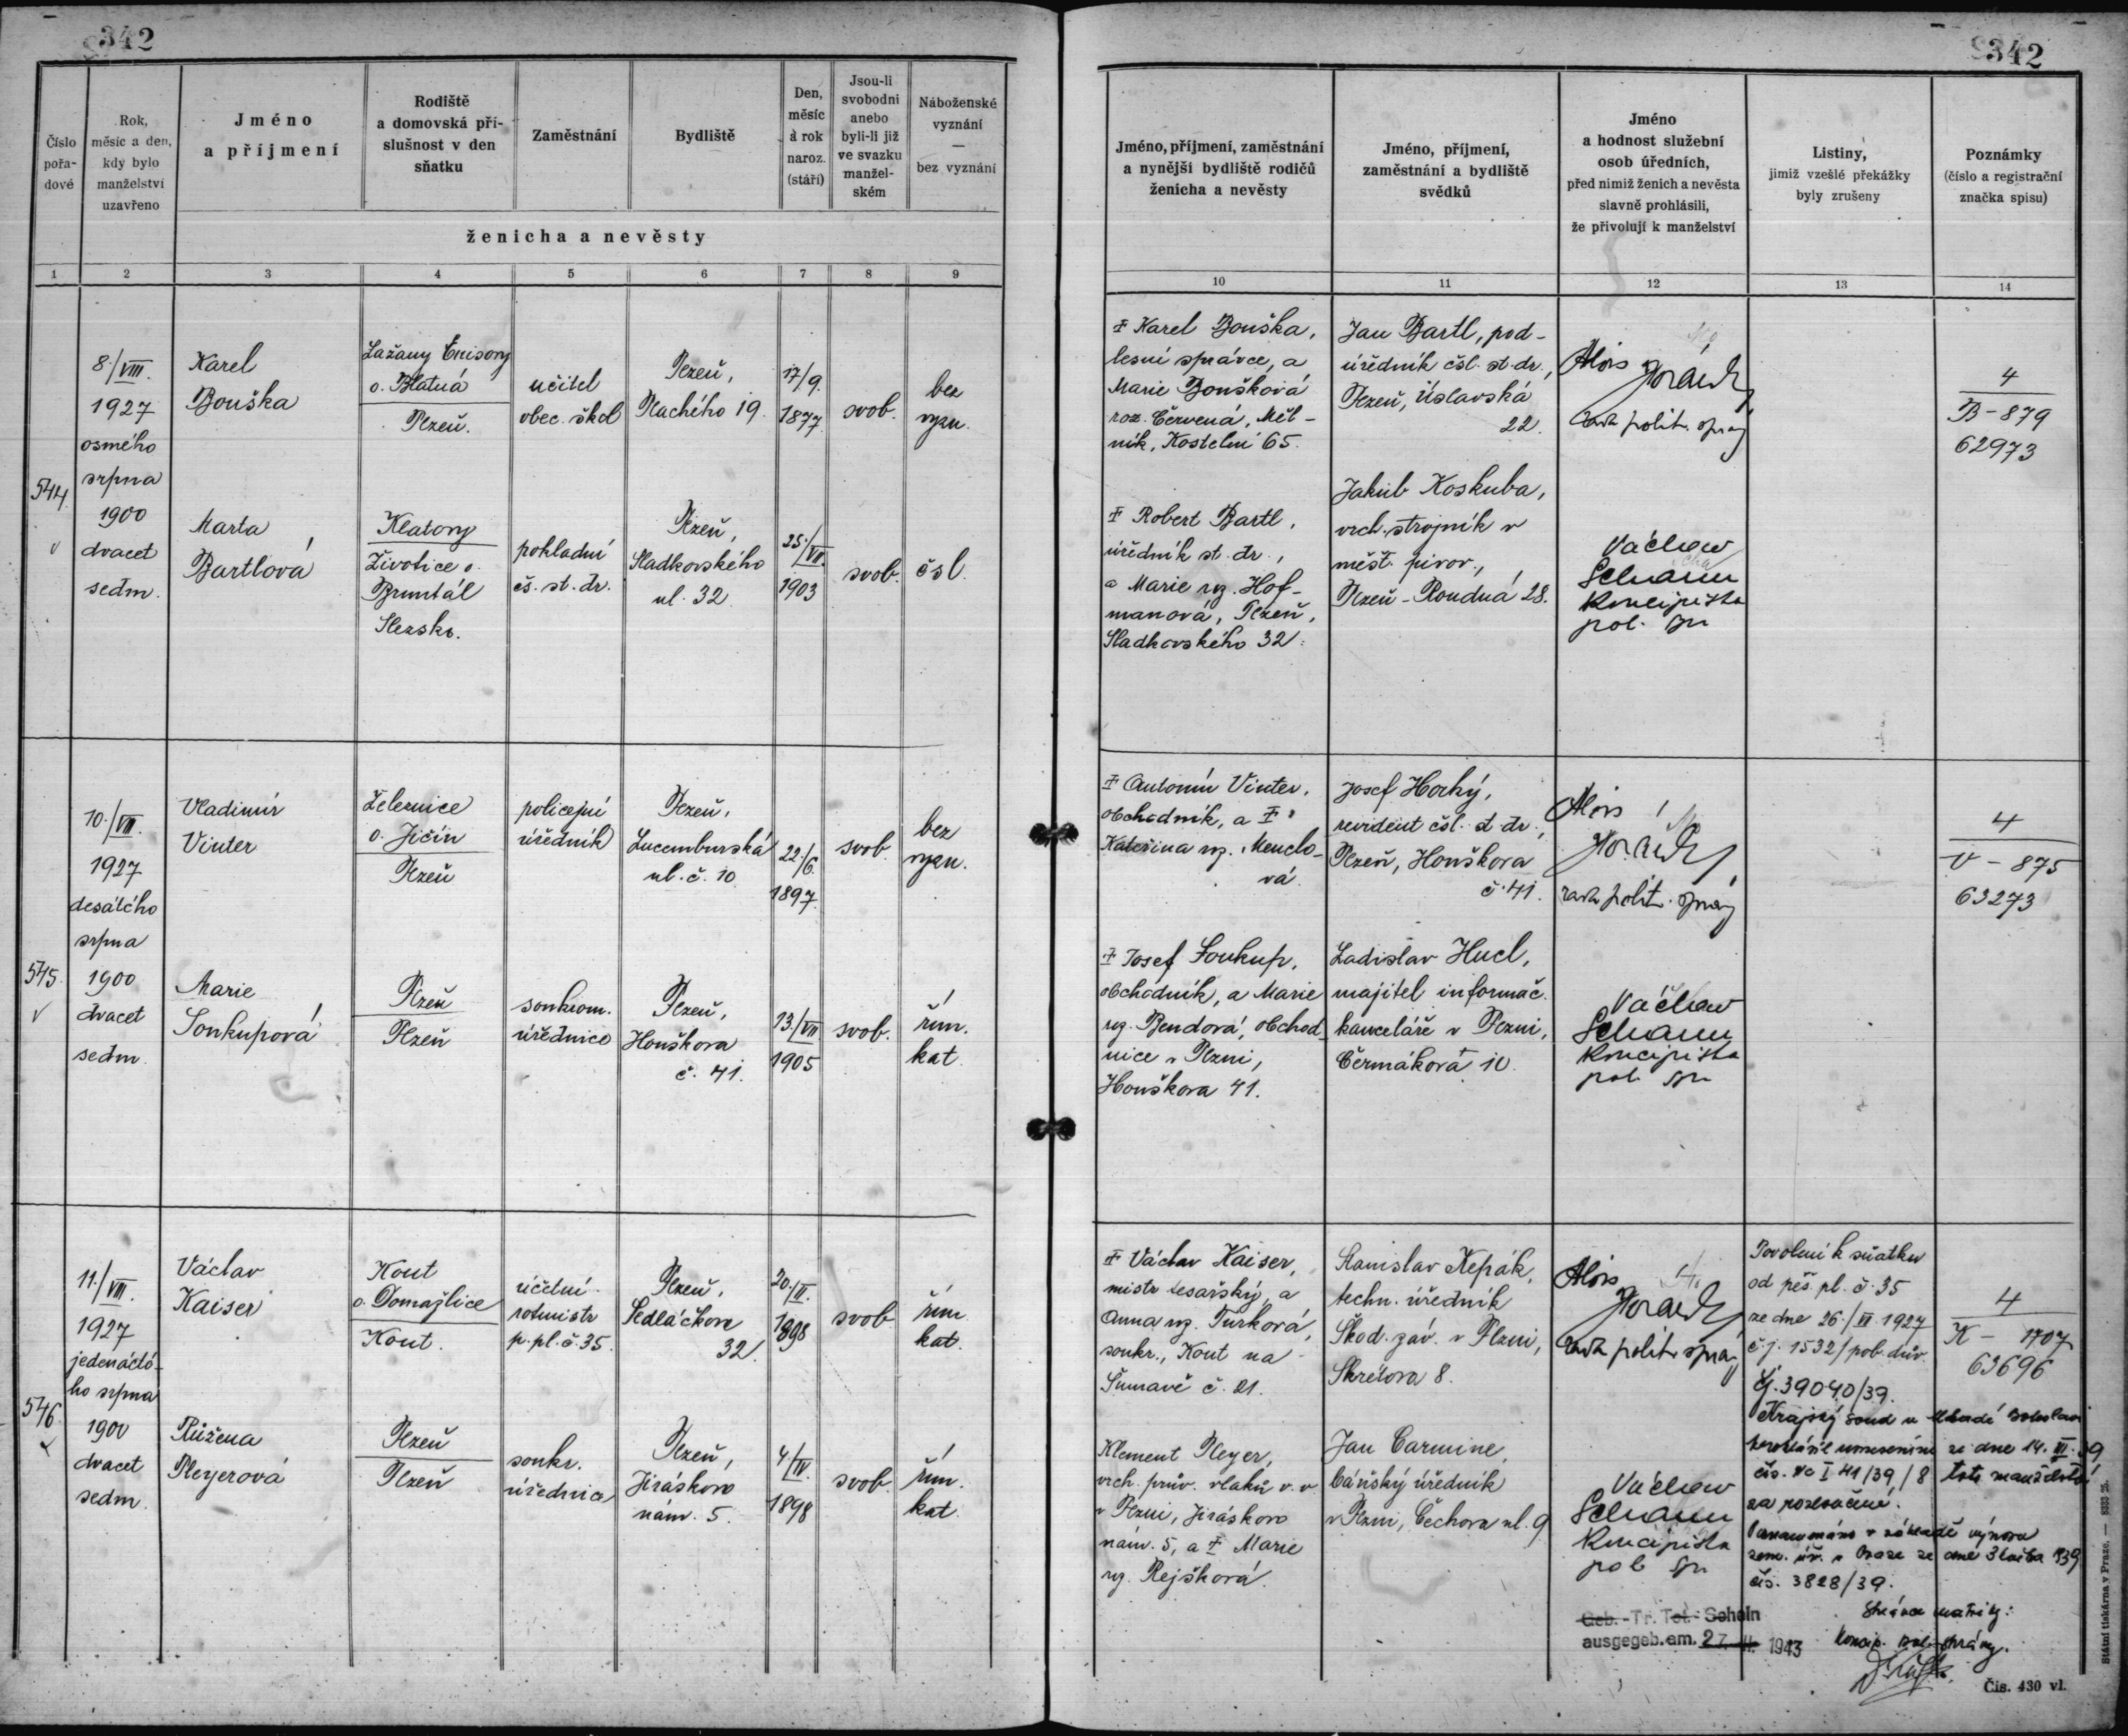 342
Číslo
pořa-
dové
Rok,
měsíc a den,
kdy bylo
manželství
uzavřeno
Jméno
a příjmení
Rodiště
a domovská pří-
slušnost v den
sňatku
Zaměstnání
Bydliště
Den,
měsíc
a rok
naroz.
(stáří)
Jsou-li
svobodni
anebo
byli-li již
ve svazku
manžel-
ském
Náboženské
vyznání
—
bez vyznání
ženicha a nevěsty
1
2
3
4
5
6
7
8
9
544
8./VIII.
1927
osmého
srpna
1900
dvacet
sedm.
Karel
Bouška
Lažany Enisovy
o. Blatná
Plzeň.
učitel
obec. škol
Plzeň,
Plachého 19.
17/9.
1877
svob.
bez
vyzn.
Marta
Bartlová
Klatovy
Životice o.
Bruntál
Slezsko.
pokladní
čs. st. dr.
Plzeň,
Sladkovského
ul. 32
25./VII.
1903
svob.
čsl.
545
10./VIII.
1927
desátého
srpna
1900
dvacet
sedm.
Vladimír
Vinter
Železnice
o. Jičín
Plzeň
policejní
úředník
Plzeň,
Lucemburská
ul. č. 10.
22./6.
1897
svob.
bez
vyzn.
Marie
Soukupová
Plzeň
Plzeň
soukrom.
úřednice
Plzeň,
Houškova
č. 41.
13./VII
1905
svob.
řím.
kat.
546
11./VIII.
1927
jedenácté-
ho srpna
1900
dvacet
sedm.
Václav
Kaiser
Kout
o. Domažlice
Kout.
účetní
rotmistr
p. pl. č. 35.
Plzeň,
Sedláčkova
32.
20./II.
1898
svob.
řím.
kat.
Růžena
Pleyerová
Plzeň
Plzeň
soukr.
úřednice
Plzeň,
Jiráskovo
nám. 5.
4/IV.
1898
svob.
řím.
kat.
342
Jméno, příjmení, zaměstnání
a nynější bydliště rodičů
ženicha a nevěsty
Jméno, příjmení,
zaměstnání a bydliště
svědků
Jméno
a hodnost služební
osob úředních,
před nimiž ženich a nevěsta
slavně prohlásili,
že přivolují k manželství
Listiny,
jimiž vzešlé překážky
byly zrušeny
Poznámky
(číslo a registrační
značka spisu)
10
11
12
13
14
‡ Karel Bouška,
lesní správce, a
Marie Boušková
roz. Červená, Měl-
ník, Kostelní 65.
Jan Bartl, pod-
úředník čsl. st. dr.,
Plzeň, Úslavská
22.
Alois
Horák
rada polit. správy
4
B-879
62973
‡ Robert Bartl,
úředník st. dr.,
a Marie rz. Hof-
manová, Plzeň,
Sladkovského 32.
Jakub Koskuba,
vrch. strojník v
měšť. pivov.,
Plzeň-Roudná 28.
Václav
Schann
koncipista
pol. spr
‡ Antonín Vinter,
obchodník, a ‡
Kateřina rz. Menclo-
vá.
Josef Horký,
revident čsl. st. dr.,
Plzeň, Houškova
č. 41.
Alois
Horák
rada polit. správy
4
V-875
63273
‡ Josef Soukup,
obchodník, a Marie
rz. Bendová, obchod-
nice v Plzni,
Houškova 41.
Ladislav Hucl,
majitel informač.
kanceláře v Plzni,
Čermákova 10.
Václav
Schann
koncipista
pol. spr
‡ Václav Kaiser,
mistr tesařský, a
Anna rz. Turková,
soukr., Kout na
Šumavě č. 21.
Stanislav Řepák,
techn. úředník
Škod. záv. v Plzni,
Skrétova 8.
Alois
Horák
rada polit. správy
Povolení k sňatku
od pěš. pl. č. 35
ze dne 26./VII. 1927
č. j. 1532/pob. dův.
4
K-1707
63696
Klement Pleyer,
vrch. prův. vlaků v. v.
v Plzni, Jiráskovo
nám. 5, a ‡ Marie
rz. Rejšková.
Jan Carmine,
báňský úředník
v Plzni, Čechova ul. 9
Václav
Schann
koncipista
pol. spr
Čj. 39040/39.
Krajský soud v Mladé Boleslavi
prohlásil usnesením ze dne 14. III. 39
čís. Nc I 41/39/8 toto manželství
za rozloučené.
Poznamenáno v základě výnosu
zem. úř. v Praze ze dne 3
čís. 3828/39.
Správce matriky:
koncip. pol. správy.
Geb.-Tr. Tot.-Schein
ausgegeb. am. 27. II. 1943
Státní tiskárna v Praze. — 8333 25.
Čís. 430 vl.